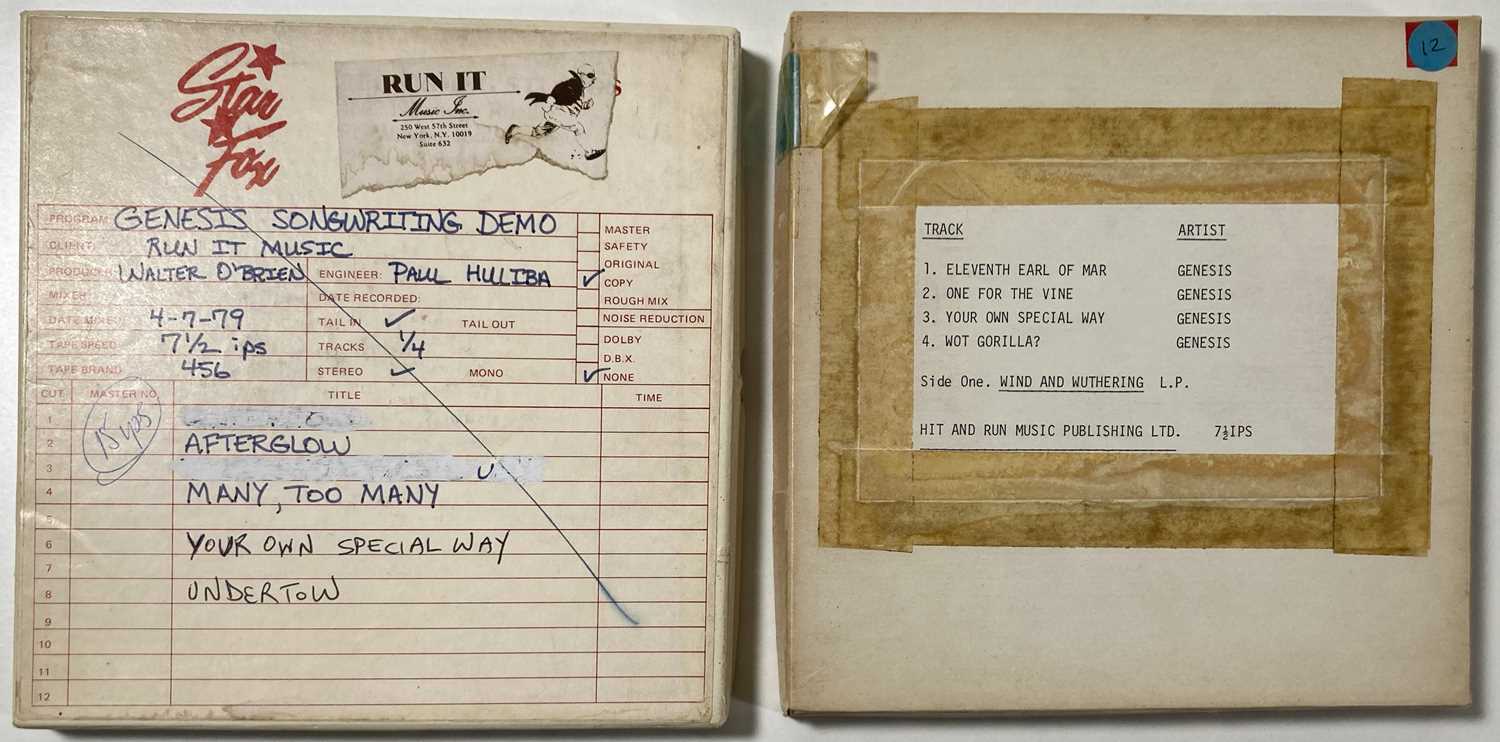 Star Fox
RUN IT
Music Inc.
250 West 57th Street
New York, N.Y. 10019
Suite 632
PROGRAM GENESIS SONGWRITING DEMO
CLIENT: RUN IT MUSIC
PRODUCER WALTER O'BRIEN ENGINEER: PAUL HULIBA
MIXER DATE RECORDED:
DATE MIXED 4-7-79 TAIL IN ✓ TAIL OUT
TAPE SPEED 7 1/2 ips TRACKS 1/4
TAPE BRAND 456 STEREO ✓ MONO
MASTER
SAFETY
ORIGINAL
✓ COPY
ROUGH MIX
NOISE REDUCTION
DOLBY
D.B.X.
✓ NONE
CUT MASTER NO. TITLE TIME
15 ips
1
2 AFTERGLOW
3
4 MANY, TOO MANY
5
6 YOUR OWN SPECIAL WAY
7
8 UNDERTOW
9
10
11
12
12
TRACK ARTIST
1. ELEVENTH EARL OF MAR GENESIS
2. ONE FOR THE VINE GENESIS
3. YOUR OWN SPECIAL WAY GENESIS
4. WOT GORILLA? GENESIS
Side One. WIND AND WUTHERING L.P.
HIT AND RUN MUSIC PUBLISHING LTD. 7½IPS